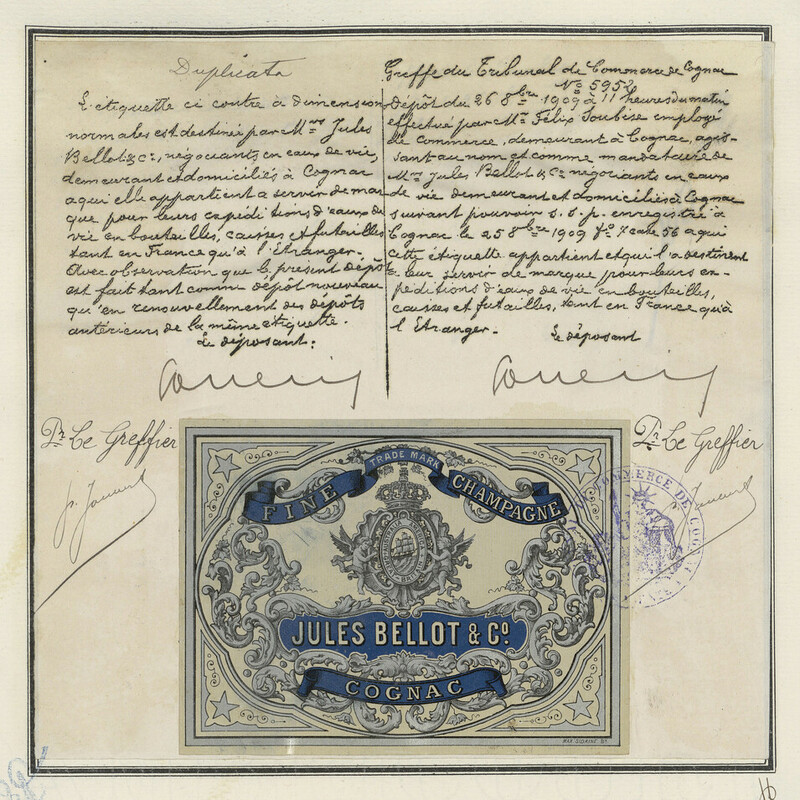 Duplicata
L'étiquette ci contre à dimensions
normales est destinée par Mrs Jules
Bellot & Cie, négociants en eaux de vie,
demeurant et domiciliés à Cognac
a qui elle appartient a servir de mar
que pour leurs expéditions d'eaux de
vie en bouteilles, caisses et futailles
tant en France qu'à l'Etranger.
Avec observation que le présent dépôt
est fait tant comme dépôt nouveau
qu'en renouvellement des dépôts
antérieurs de la même étiquette.
Le déposant:
Greffe du Tribunal de Commerce de Cognac
No 5952
dépôt du 26 8bre 1909 à 11 heures du matin
effectué par Mr Félix Soubise employé
de commerce, demeurant à Cognac, agis-
sant au nom et comme mandataire de
Mrs Jules Bellot & Cie négociants en eaux
de vie demeurant et domiciliés à Cognac
suivant pouvoir s. s. p. enregistré à
Cognac le 25 8bre 1909 fo 7 case 56 a qui
cette étiquette appartient et qui l'a destinent
à leur servir de marque pour leurs ex-
péditions d'eaux de vie en bouteilles,
caisses et futailles, tant en France qu'à
l'Etranger.
Le déposant
Pr Le Greffier
Pr Le Greffier
TRADE MARK
FINE CHAMPAGNE
JULES BELLOT & Co
COGNAC
COMMERCE DE COGNAC